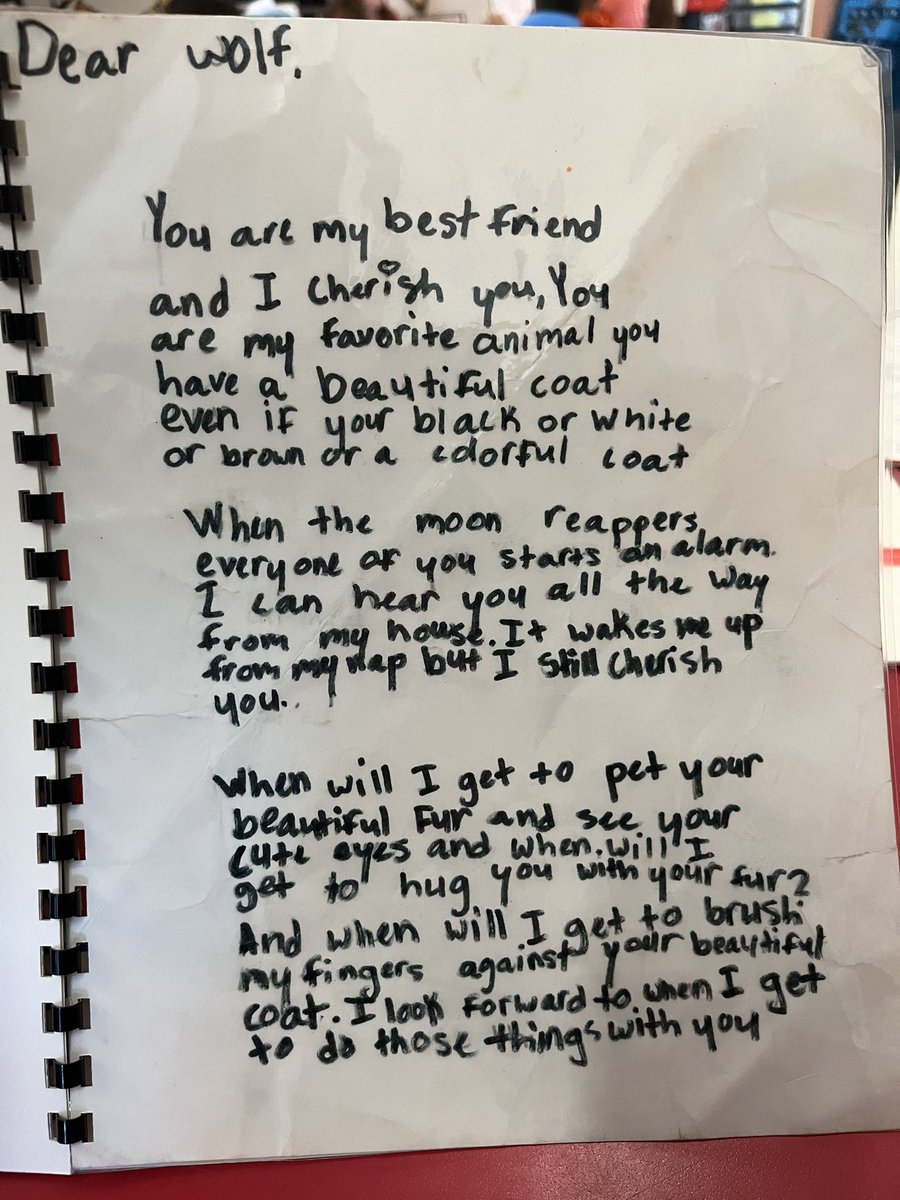 Dear wolf.
You are my best friend
and I cherish you, You
are my favorite animal you
have a beautiful coat
even if your black or white
or brown or a colorful coat
When the moon reappers,
everyone of you starts an alarm.
I can hear you all the way
from my house. It wakes me up
from my nap but I still cherish
you..
When will I get to pet your
beautiful fur and see your
cute eyes and when. will I
get to hug you with your fur?
And when will I get to brush
my fingers against your beautiful
coat. I look forward to when I get
to do those things with you